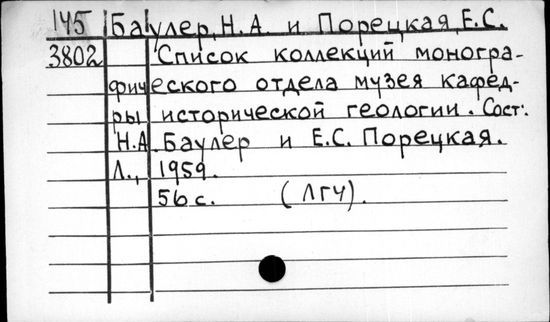 145 Баулер, Н.А. и Порецкая, Е.С.
3802 Список коллекций моногра-
фического отдела музея кафед-
ры исторической геологии. Сост.:
Н.А. Баулер и Е.С. Порецкая.
Л., 1959.
56 с. (ЛГУ).